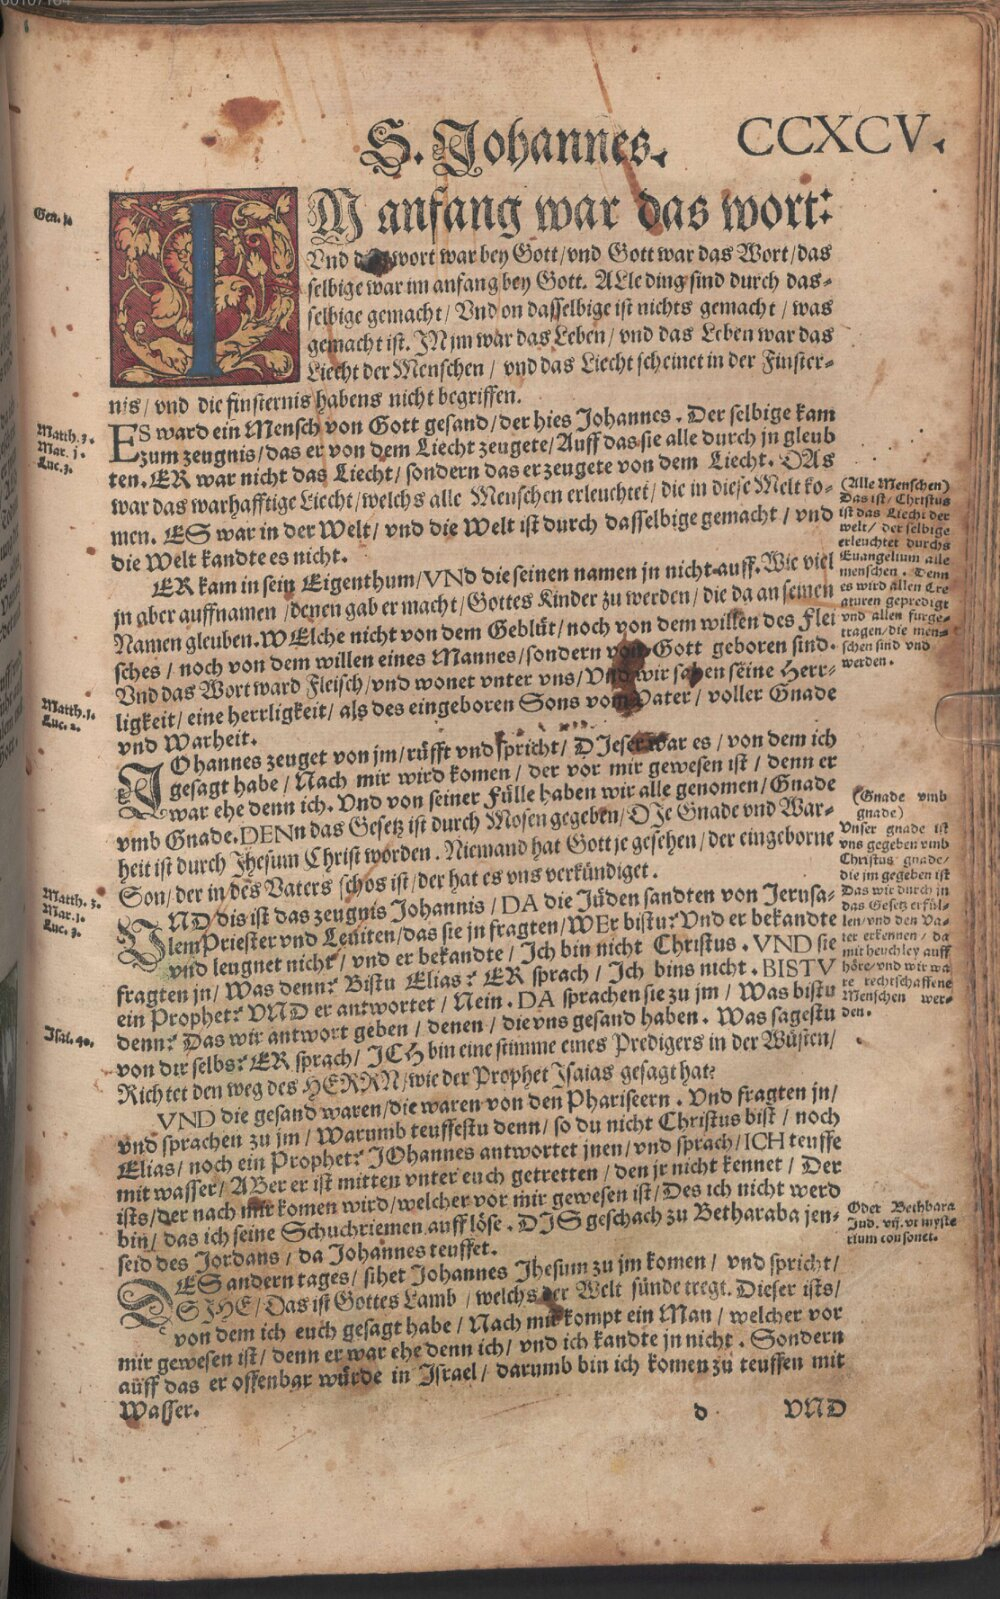 S. Johannes.
CCXCV.
Gen. 1.
IM anfang war das wort:
Vnd das wort war bey Gott/vnd Gott war das Wort/das
selbige war im anfang bey Gott. ALle ding sind durch das-
selbige gemacht/ Vnd on dasselbige ist nichts gemacht / was
gemacht ist. JN jm war das Leben/ vnd das Leben war das
Liecht der Menschen / vnd das Liecht scheinet in der Finster-
nis/ vnd die finsternis habens nicht begriffen.
Matth. 3.
Mar. 1.
Luc. 3.
ES ward ein Mensch von Gott gesand/der hies Johannes. Der selbige kam
zum zeugnis/das er von dem Liecht zeugete/Auff das sie alle durch jn gleub
ten. ER war nicht das Liecht/ sondern das er zeugete von dem Liecht. DAs
war das warhafftige Liecht/welchs alle Menschen erleuchtet/ die in diese Welt ko-
men. ES war in der Welt/ vnd die Welt ist durch dasselbige gemacht / vnd
die Welt kandte es nicht.
(Alle Menschen)
Das ist/ Christus
ist das Liecht der
welt/ der selbige
erleuchtet durchs
Euangelium alle
menschen. Denn
es wird allen Cre
aturen gepredigt
vnd allen furge-
tragen/die men-
schen sind vnd
werden.
ER kam in sein Eigenthum/VNd die seinen namen jn nicht auff. Wie viel
jn aber auffnamen/denen gab er macht/Gottes Kinder zu werden/ die da an seinen
Namen gleuben. WElche nicht von dem Geblüt/noch von dem willen des Flei
sches / noch von dem willen eines Mannes/sondern von Gott geboren sind.
Matth. 1.
Luc. 2.
Vnd das Wort ward Fleisch/vnd wonet vnter vns/ Vnd wir sahen seine Herr-
ligkeit/ eine herrligkeit/ als des eingeboren Sons vom Vater/ voller Gnade
vnd Warheit.
JOhannes zeuget von jm/rüfft vnd spricht/ DJeser war es / von dem ich
gesagt habe / Nach mir wird komen / der vor mir gewesen ist / denn er
war ehe denn ich. Vnd von seiner Fülle haben wir alle genomen/ Gnade
vmb Gnade. DENn das Gesetz ist durch Mosen gegeben/ DJe Gnade vnd War-
heit ist durch Jhesum Christ worden. Niemand hat Gott je gesehen/der eingeborne
Son/ der in des Vaters schos ist/der hat es vns verkündiget.
(Gnade vmb
gnade)
Vnser gnade ist
vns gegeben vmb
Christus gnade/
die jm gegeben ist
Das wir durch jn
das Gesetz erfül-
len/vnd den Va-
ter erkennen / da
mit heuchley auff
höre/vnd wir wa
re rechtschaffene
Menschen wer-
den.
Matth. 3.
Mar. 1.
Luc. 3.
VND dis ist das zeugnis Johannis / DA die Jüden sandten von Jerusa-
lem Priester vnd Leuiten/das sie jn fragten/WEr bistu? Vnd er bekandte
vnd leugnet nicht/ vnd er bekandte / Ich bin nicht Christus. VND sie
fragten jn/ Was denn? Bistu Elias? ER sprach / Ich bins nicht. BISTV
ein Prophet? VND er antwortet / Nein. DA sprachen sie zu jm / Was bistu
denn? Das wir antwort geben / denen / die vns gesand haben. Was sagestu
Isai. 40.
von dir selbs? ER sprach/ JCH bin eine stimme eines Predigers in der Wüsten/
Richtet den weg des HERRN/wie der Prophet Isaias gesagt hat?
VND die gesand waren/die waren von den Phariseern. Vnd fragten jn/
vnd sprachen zu jm / Warumb teuffestu denn/ so du nicht Christus bist / noch
Elias/ noch ein Prophet? JOhannes antwortet jnen/vnd sprach/ICH teuffe
mit wasser/ ABer er ist mitten vnter euch getretten / den jr nicht kennet / Der
ists/der nach mir komen wird/welcher vor mir gewesen ist/ Des ich nicht werd
bin/ das ich seine Schuchriemen aufflöse. DJS geschach zu Betharaba jen-
seid des Jordans / da Johannes teuffet.
Oder Bethbara
Jud. vij. vt myste
rium consonet.
DES andern tages/ sihet Johannes Jhesum zu jm komen / vnd spricht/
SJHE/Das ist Gottes Lamb / welchs der Welt sünde tregt. Dieser ists/
von dem ich euch gesagt habe / Nach mir kompt ein Man / welcher vor
mir gewesen ist/ denn er war ehe denn ich/ vnd ich kandte jn nicht. Sondern
auff das er offenbar würde in Israel / darumb bin ich komen zu teuffen mit
Wasser.
d
VND